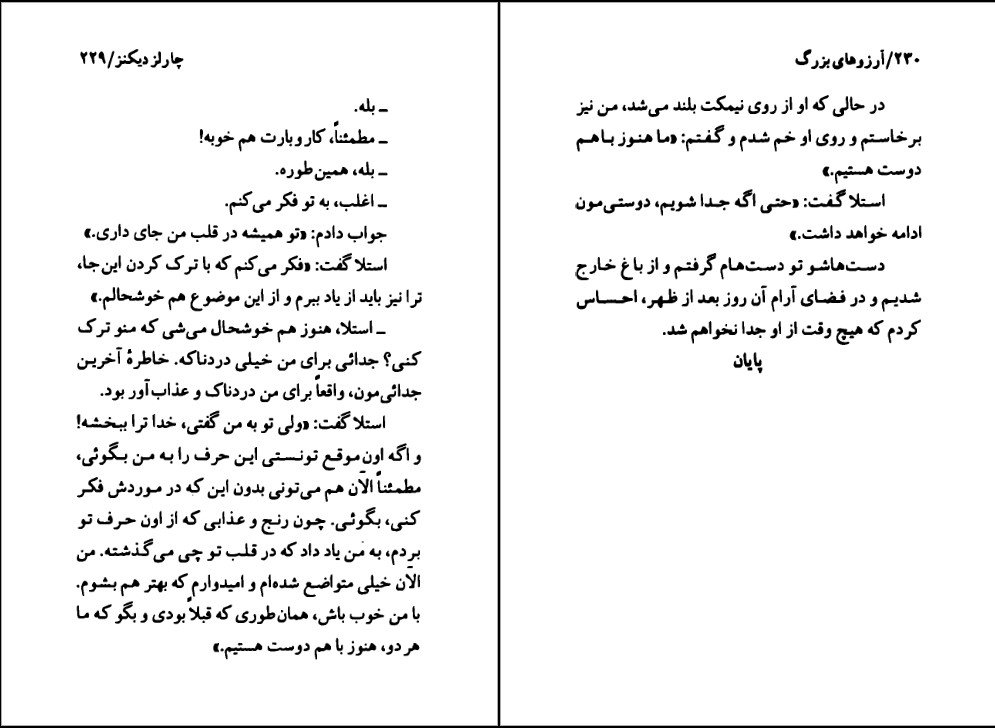 چارلز دیکنز/۲۲۹
ـ بله.
ـ مطمئناً، کار و بارت هم خوبه!
ـ بله، همین‌طوره.
ـ اغلب، به تو فکر می‌کنم.
جواب دادم: «تو همیشه در قلب من جای داری.»
استلا گفت: «فکر می‌کنم که با ترک کردن این‌جا،
ترا نیز باید از یاد ببرم و از این موضوع هم خوشحالم.»
ـ استلا، هنوز هم خوشحال می‌شی که منو ترک
کنی؟ جدائی برای من خیلی دردناکه. خاطرهٔ آخرین
جدائی‌مون، واقعاً برای من دردناک و عذاب‌آور بود.
استلا گفت: «ولی تو به من گفتی، خدا ترا ببخشه!
و اگه اون موقع تونستی این حرف را به من بگوئی،
مطمئناً الآن هم می‌تونی بدون این که در موردش فکر
کنی، بگوئی. چون رنج و عذابی که از اون حرف تو
بردم، به من یاد داد که در قلب تو چی می‌گذشته. من
الآن خیلی متواضع شده‌ام و امیدوارم که بهتر هم بشوم.
با من خوب باش، همان‌طوری که قبلاً بودی و بگو که ما
هر دو، هنوز با هم دوست هستیم.»
۲۳۰/آرزوهای بزرگ
در حالی که او از روی نیمکت بلند می‌شد، من نیز
برخاستم و روی او خم شدم و گفتم: «ما هنوز باهم
دوست هستیم.»
استلا گفت: «حتی اگه جدا شویم، دوستی‌مون
ادامه خواهد داشت.»
دست‌هاشو تو دست‌هام گرفتم و از باغ خارج
شدیم و در فضای آرام آن روز بعد از ظهر، احساس
کردم که هیچ وقت از او جدا نخواهم شد.
پایان